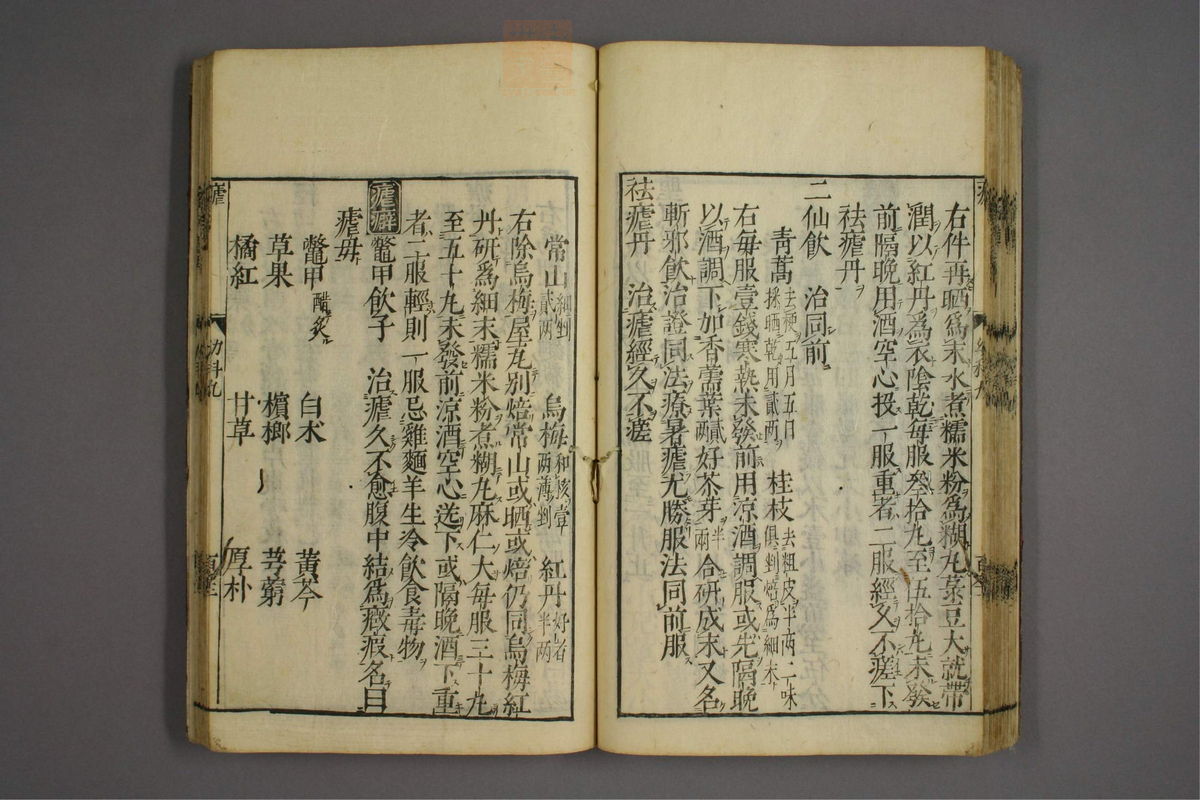 右件再晒爲末水煮糯米粉爲糊丸菉豆大就帶
潤以紅丹爲衣陰乾每服叄拾丸至伍拾丸未發
前隔晚用酒空心投一服重者二服經久不瘥下
祛瘧丹
二仙飲　治同前
青蒿去梗五月五日採晒乾用貳兩　桂枝去粗皮半兩二味俱剉焙爲細末
右每服壹錢寒熱未發前用涼酒調服或先隔晚
以酒調下加香薷葉貳兩好茶芽半兩合研成末又名
斬邪飲治證同法療暑瘧尤勝服法同前服
祛瘧丹　治瘧經久不瘥
常山細剉貳兩　烏梅和核壹兩薄剉　紅丹好者半兩
右除烏梅屋瓦別焙常山或晒或焙仍同烏梅紅
丹研爲細末糯米粉煮糊丸麻仁大每服三十丸
至五十丸未發前涼酒空心送下或隔晚酒下重
者二服輕則一服忌雞麵羊生冷飲食毒物
瘧癖　鼈甲飲子　治瘧久不愈腹中結爲癥瘕名曰
瘧母
鼈甲醋炙　白朮　黃芩
草果　檳榔　芎藭
橘紅　甘草　厚朴
瘧
幼科九